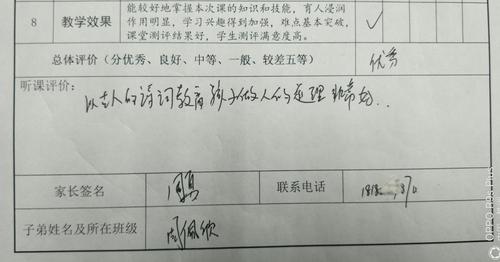 能较好地掌握本次课的知识和技能，育人浸润
8 教学效果 作用明显，学习兴趣得到加强，难点基本突破，
课堂测评结果好，学生测评满意度高。
总体评价（分优秀、良好、中等、一般、较差五等） 优秀
听课评价：
以古人的诗词教育孩子做人的道理非常好..
家长签名 周勇 联系电话
子弟姓名及所在班级 周佩欣
OPPO R9s Plus